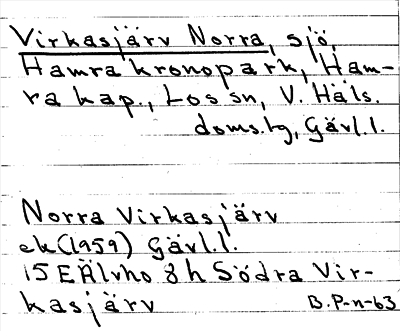 Virkasjärv Norra, sjö,
Hamra kronopark, Ham-
ra kap., Los sn, V. Häls.
doms.lg, Gävl.l.
Norra Virkasjärv
ek(1959) Gävl.l.
15E Älvho 8h Södra Vir-
kasjärv B.P-n-63